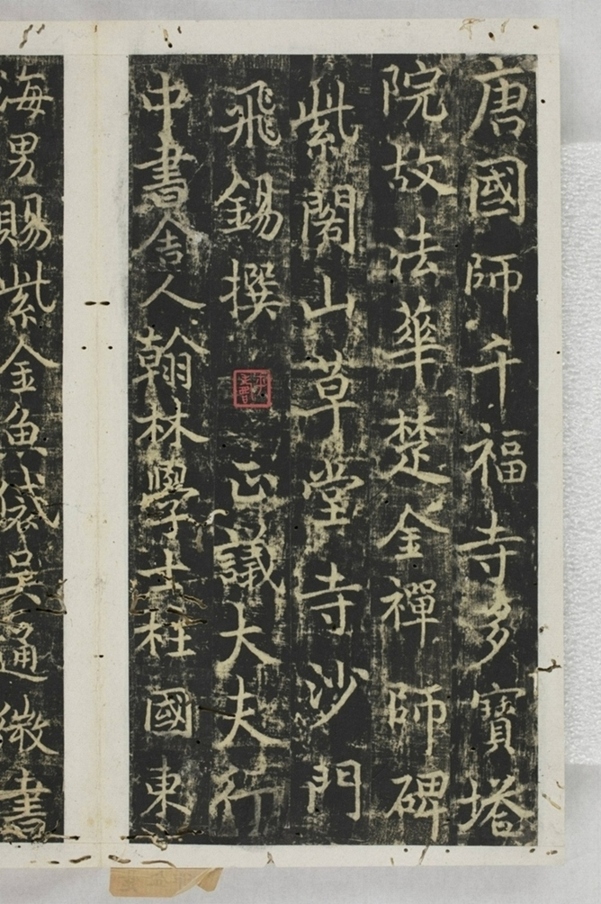 唐國師千福寺多寶塔
院故法華楚金禪師碑
紫閣山草堂寺沙門
飛錫撰 正議大夫行
中書舍人翰林學士柱國東
海男賜紫金魚袋吳通微書